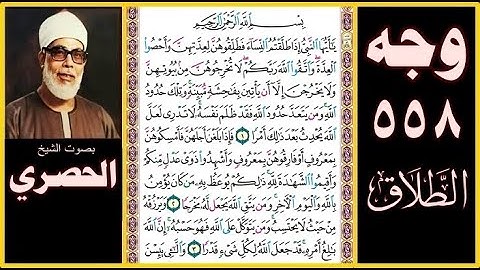 بصوت الشيخ
الحصري
بِسْمِ اللَّهِ الرَّحْمَٰنِ الرَّحِيمِ
يَٰٓأَيُّهَا ٱلنَّبِىُّ إِذَا طَلَّقْتُمُ ٱلنِّسَآءَ فَطَلِّقُوهُنَّ لِعِدَّتِهِنَّ وَأَحْصُوا۟
ٱلْعِدَّةَ وَٱتَّقُوا۟ ٱللَّهَ رَبَّكُمْ لَا تُخْرِجُوهُنَّ مِنۢ بُيُوتِهِنَّ
وَلَا يَخْرُجْنَ إِلَّآ أَن يَأْتِينَ بِفَٰحِشَةٍ مُّبَيِّنَةٍ وَتِلْكَ حُدُودُ
ٱللَّهِ وَمَن يَتَعَدَّ حُدُودَ ٱللَّهِ فَقَدْ ظَلَمَ نَفْسَهُۥ لَا تَدْرِى لَعَلَّ
ٱللَّهَ يُحْدِثُ بَعْدَ ذَٰلِكَ أَمْرًا ١ فَإِذَا بَلَغْنَ أَجَلَهُنَّ فَأَمْسِكُوهُنَّ
بِمَعْرُوفٍ أَوْ فَارِقُوهُنَّ بِمَعْرُوفٍ وَأَشْهِدُوا۟ ذَوَىْ عَدْلٍ مِّنكُمْ
وَأَقِيمُوا۟ ٱلشَّهَٰدَةَ لِلَّهِ ذَٰلِكُمْ يُوعَظُ بِهِۦ مَن كَانَ يُؤْمِنُ
بِٱللَّهِ وَٱلْيَوْمِ ٱلْءَاخِرِ وَمَن يَتَّقِ ٱللَّهَ يَجْعَل لَّهُۥ مَخْرَجًا ٢ وَيَرْزُقْهُ
مِنْ حَيْثُ لَا يَحْتَسِبُ وَمَن يَتَوَكَّلْ عَلَى ٱللَّهِ فَهُوَ حَسْبُهُۥٓ إِنَّ ٱللَّهَ
بَٰلِغُ أَمْرِهِۦ قَدْ جَعَلَ ٱللَّهُ لِكُلِّ شَىْءٍ قَدْرًا ٣ وَٱلَّٰٓـِٔى يَئِسْنَ
وجه
٥٥٨
الطَّلَاق